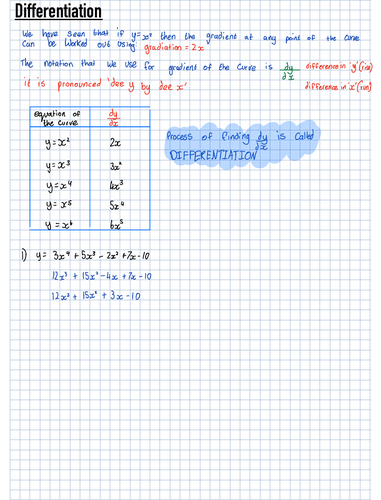 Differentiation
We have seen that if y=x² then the gradient at any point of the curve
can be worked out using gradiation = 2x
The notation that we use for gradient of the curve is dy/dx difference in 'y' (rise)
difference in 'x' (run)
it is pronounced 'dee y by dee x'
equation of the curve | dy/dx
y=x² | 2x
y=x³ | 3x²
y=x⁴ | 4x³
y=x⁵ | 5x⁴
y=x⁶ | 6x⁵
Process of finding dy/dx is called
DIFFERENTIATION
1) y= 3x⁴ + 5x³ - 2x² + 7x - 10
12x³ + 15x² - 4x + 7x - 10
12x³ + 15x² + 3x - 10